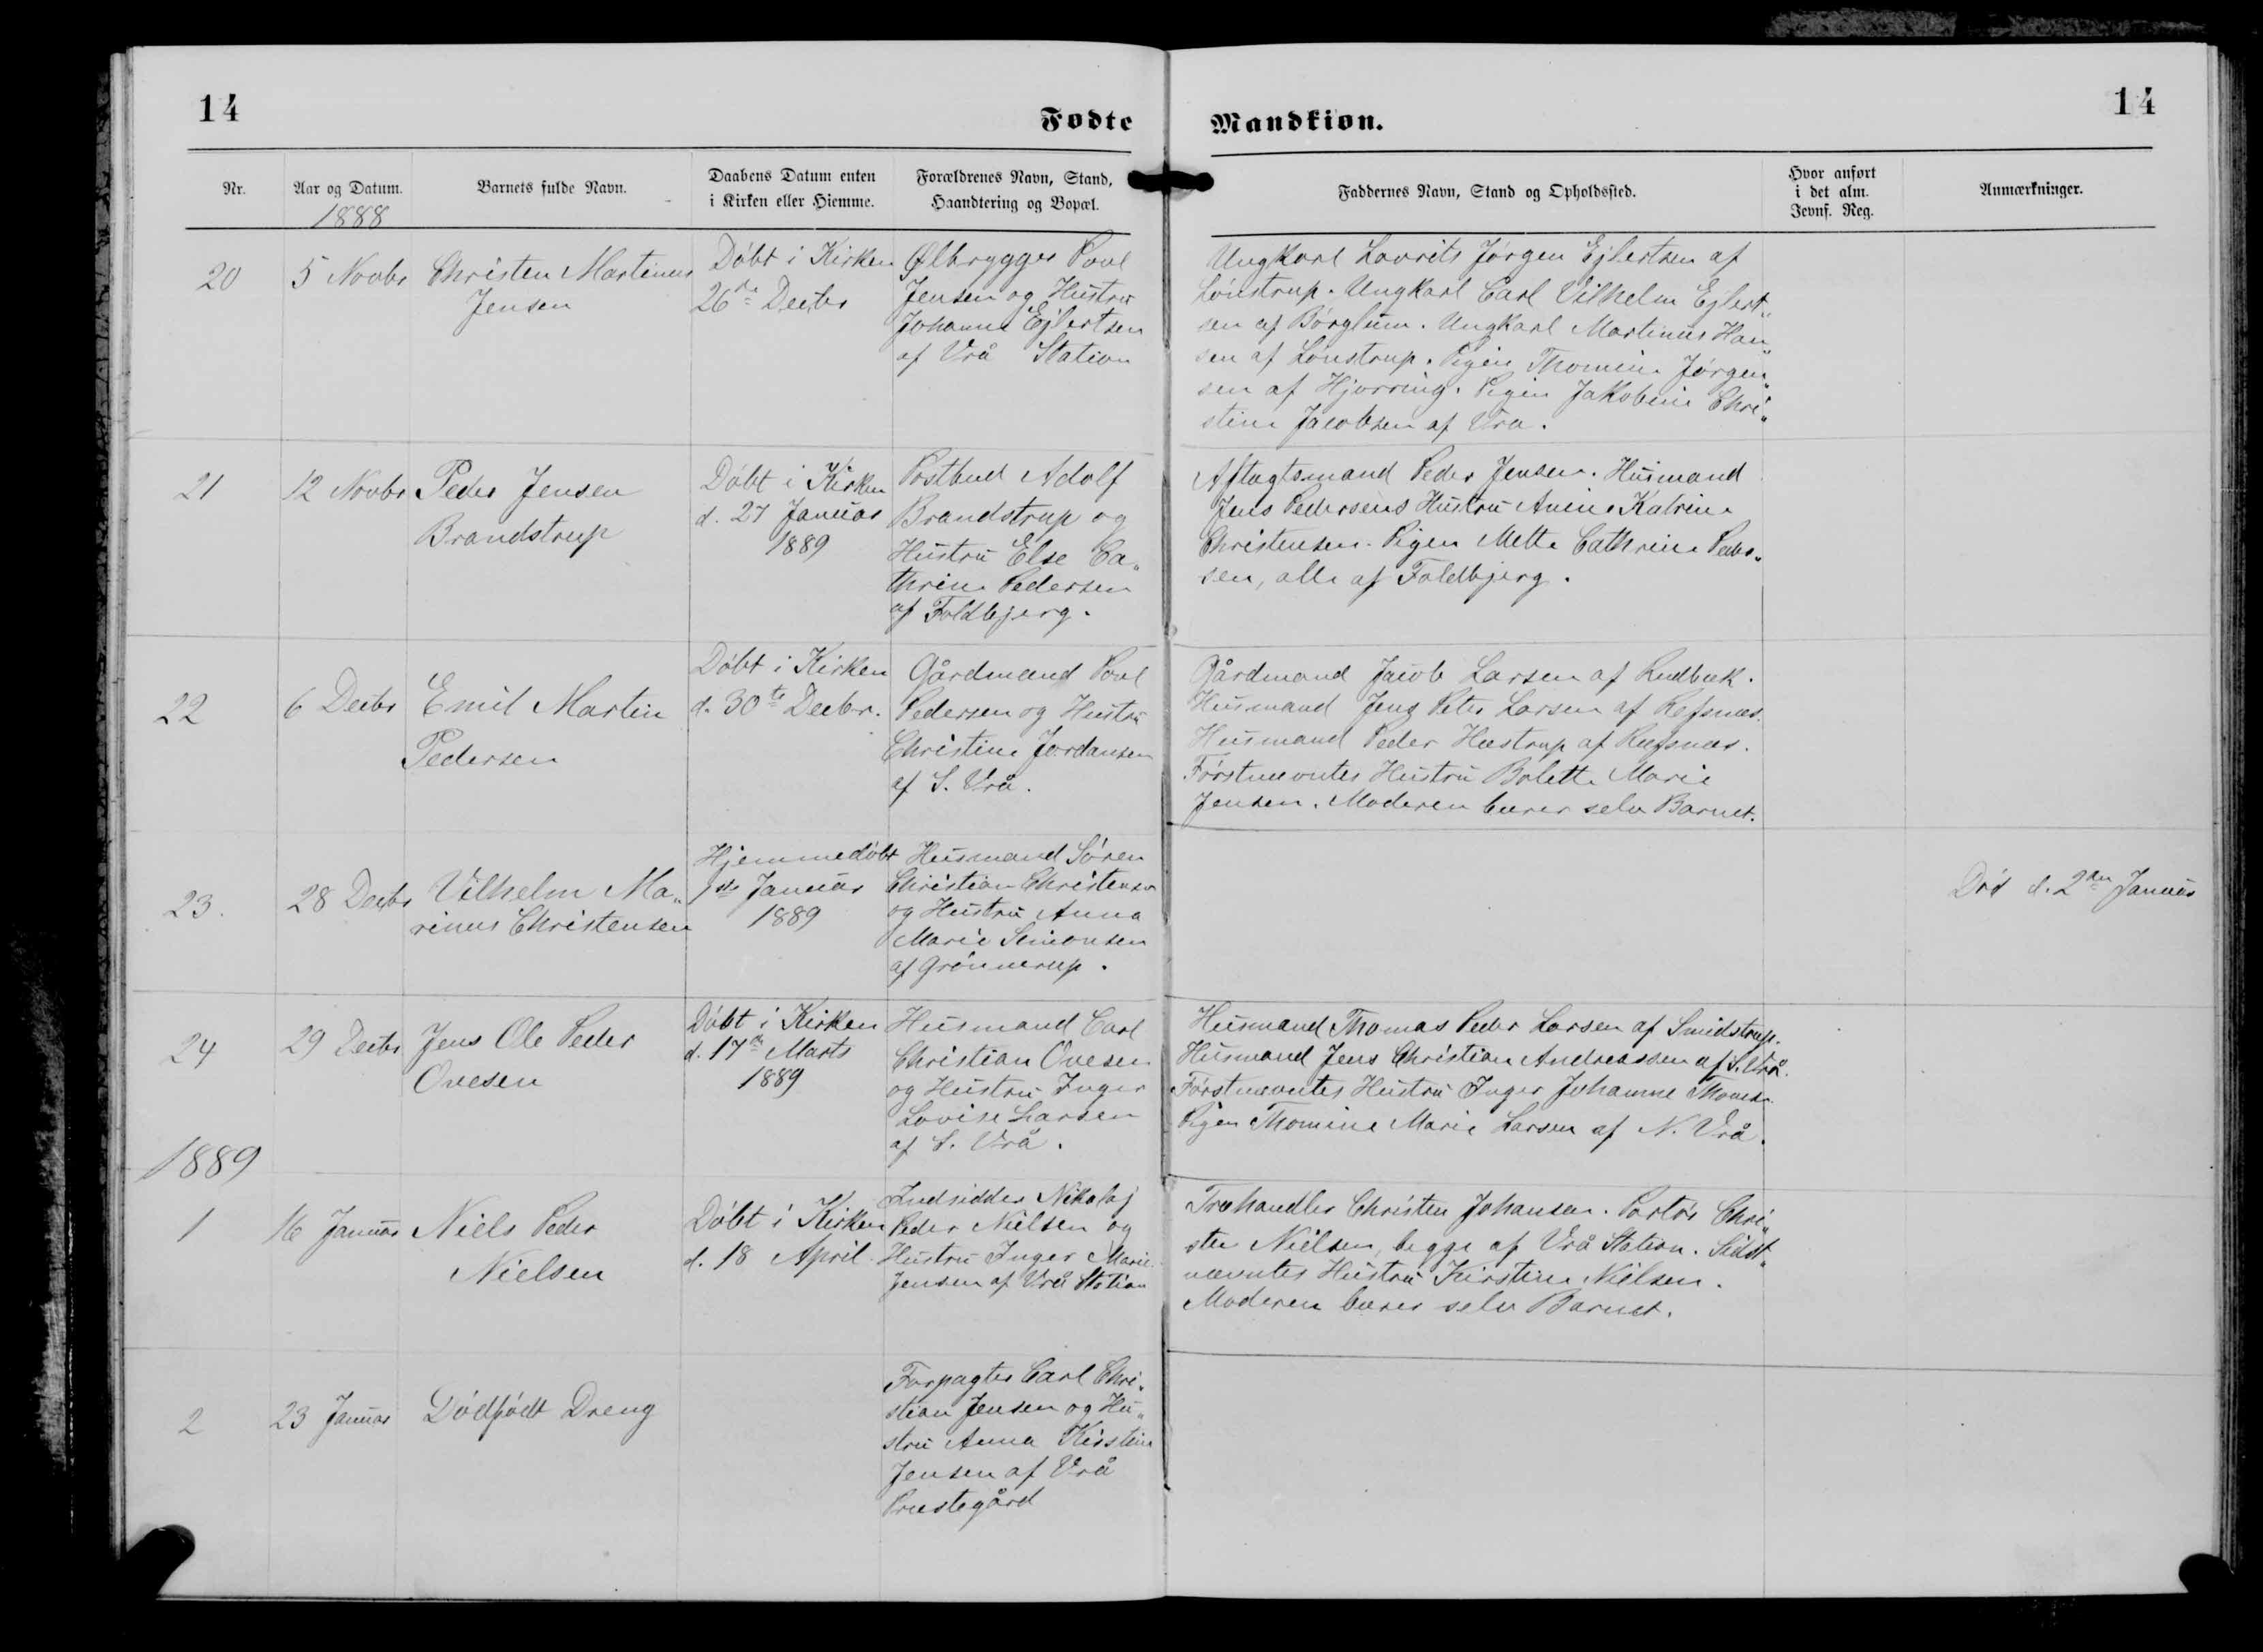 14
Fødte
Mandkiøn.
14
Nr.
Aar og Datum.
1888
Barnets fulde Navn.
Daabens Datum enten
i Kirken eller Hiemme.
Forældrenes Navn, Stand,
Haandtering og Bopæl.
Faddernes Navn, Stand og Opholdssted.
Hvor anført
i det alm.
Jevnf. Reg.
Anmærkninger.
20
5 Novbr
Christen Martinus
Jensen
Döbt i Kirken
26de Decbr
Ølbrygger Poul
Jensen og Hustru
Johanne Ejlertsen
af Vrå Station
Ungkarl Lavrits Jörgen Ejlertsen af
Lönstrup. Ungkarl Carl Vilhelm Ejlert„
sen af Börglum. Ungkarl Martinus Han„
sen af Lönstrup. Pigen Thomine Jörgen„
sen af Hjørring. Pigen Jakobine Chri„
stine Jacobsen af Vra.
21
12 Novbr
Peder Jensen
Brandstrup
Döbt i Kirken
d. 27 Januar
1889
Postbud Adolf
Brandstrup og
Hustru Else Ca„
thrine Pedersen
af Foldbjerg.
Aftagtsmand Peder Jensen. Husmand
Jens Pedersens Hustru Anine Katrine
Christensen. Pigen Mette Cathrine Peder„
sen, alle af Foldbjerg.
22
6 Decbr
Emil Martin
Pedersen
Döbt i Kirken
d. 30te Decbr.
Gårdmand Poul
Pedersen og Hustru
Christine Jordansen
af S. Vrå.
Gårdmand Jacob Larsen af Rudbæk.
Husmand Jens Peter Larsen af Refsnæs.
Husmand Peder Hæstrup af Refsnæs.
Förstnævntes Hustru Bolette Marie
Jensen. Moderen bærer selv Barnet.
23.
28 Decbr
Vilhelm Ma„
rinus Christensen
Hjemmedöbt
1ste Januar
1889
Husmand Sören
Christian Christensen
og Hustru Anna
Marie Simonsen
af Grönnerup.
Död d. 2den Januar
24
29 Decbr
Jens Ole Peder
Ovesen
Döbt i Kirken
d. 17de Marts
1889
Husmand Carl
Christian Ovesen
og Hustru Inger
Lovise Larsen
af S. Vrå.
Husmand Thomas Peder Larsen af Smidstrup.
Husmand Jens Christian Andreassen af S. Vrå.
Förstnævntes Hustru Inger Johanne Thomsen.
Pigen Thomine Marie Larsen af N. Vrå.
1889
1
16 Januar
Niels Peder
Nielsen
Döbt i Kirken
d. 18 April.
Indsidder Nikolaj
Peder Nielsen og
Hustru Inger Marie
Jensen af Vrå Station
Træhandler Christen Johansen. Portör Chri„
sten Nielsen, begge af Vrå Station. Sidst„
nævntes Hustru Kirstine Nielsen.
Moderen bærer selv Barnet.
2
23 Januar
Dödfödt Dreng
Forpagter Carl Chri„
stian Jensen og Hu„
stru Anna Kirstine
Jensen af Vrå
Præstegård